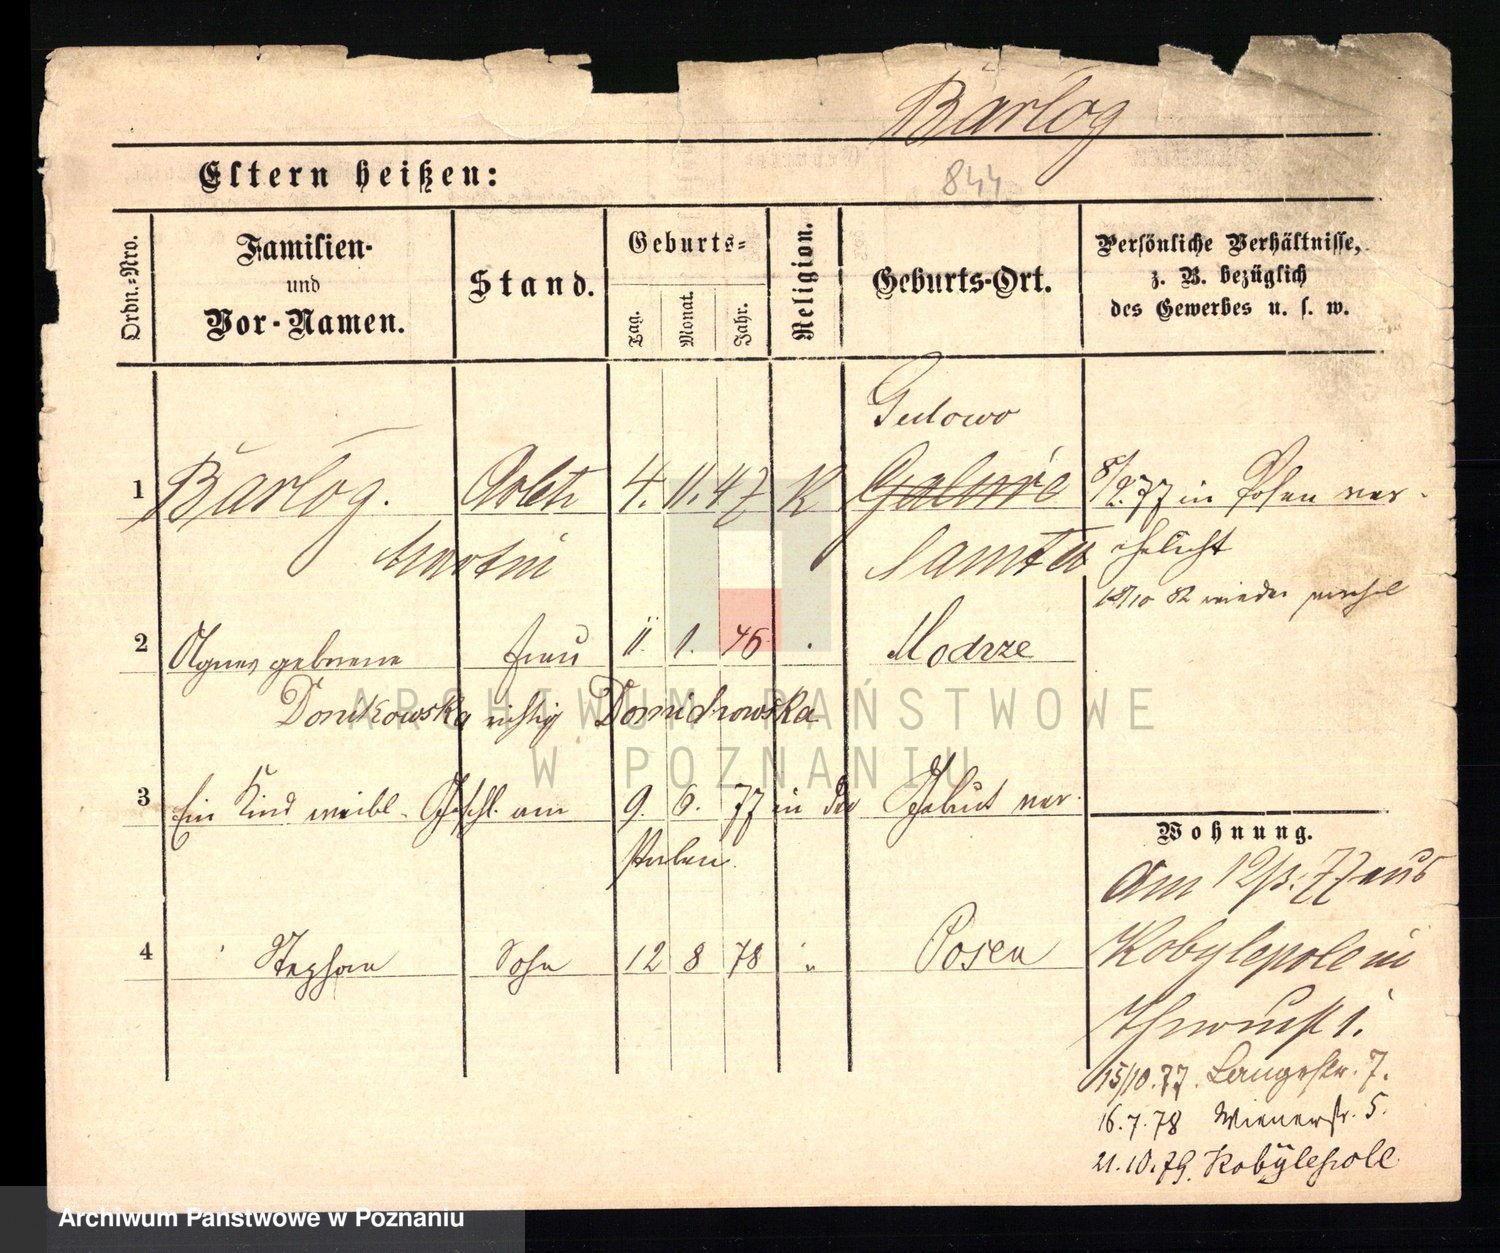 Barłog
844
Eltern heißen:
Ordn.-Nro.
Familien-
und
Vor-Namen.
Stand.
Geburts-
Tag.
Monat.
Jahr.
Religion.
Geburts-Ort.
Persönliche Verhältnisse,
z. B. bezüglich
des Gewerbes u. s. w.
Gulowo
1 Barłog. Arbtr 4. 11. 47 K
8/2. 77 in Posen ver-
Martin Samter ehelicht
wieder
2 Agnes geborene Frau 11. 1. 46 Modrze
Donikowska richtig Domichowska
3 Ein Kind weibl. Geschl. am 9. 6. 77 in der Geburt ver-
storben.
4 Stephan Sohn 12 8 78 " Posen
Wohnung.
Am 12/3. 77 aus
Kobylepole in
1.
15/10. 77. Langestr. 7.
16. 7. 78 Wienerstr. 5.
21. 10. 79. Kobylepole
ARCHIWUM PAŃSTWOWE
W POZNANIU
Archiwum Państwowe w Poznaniu